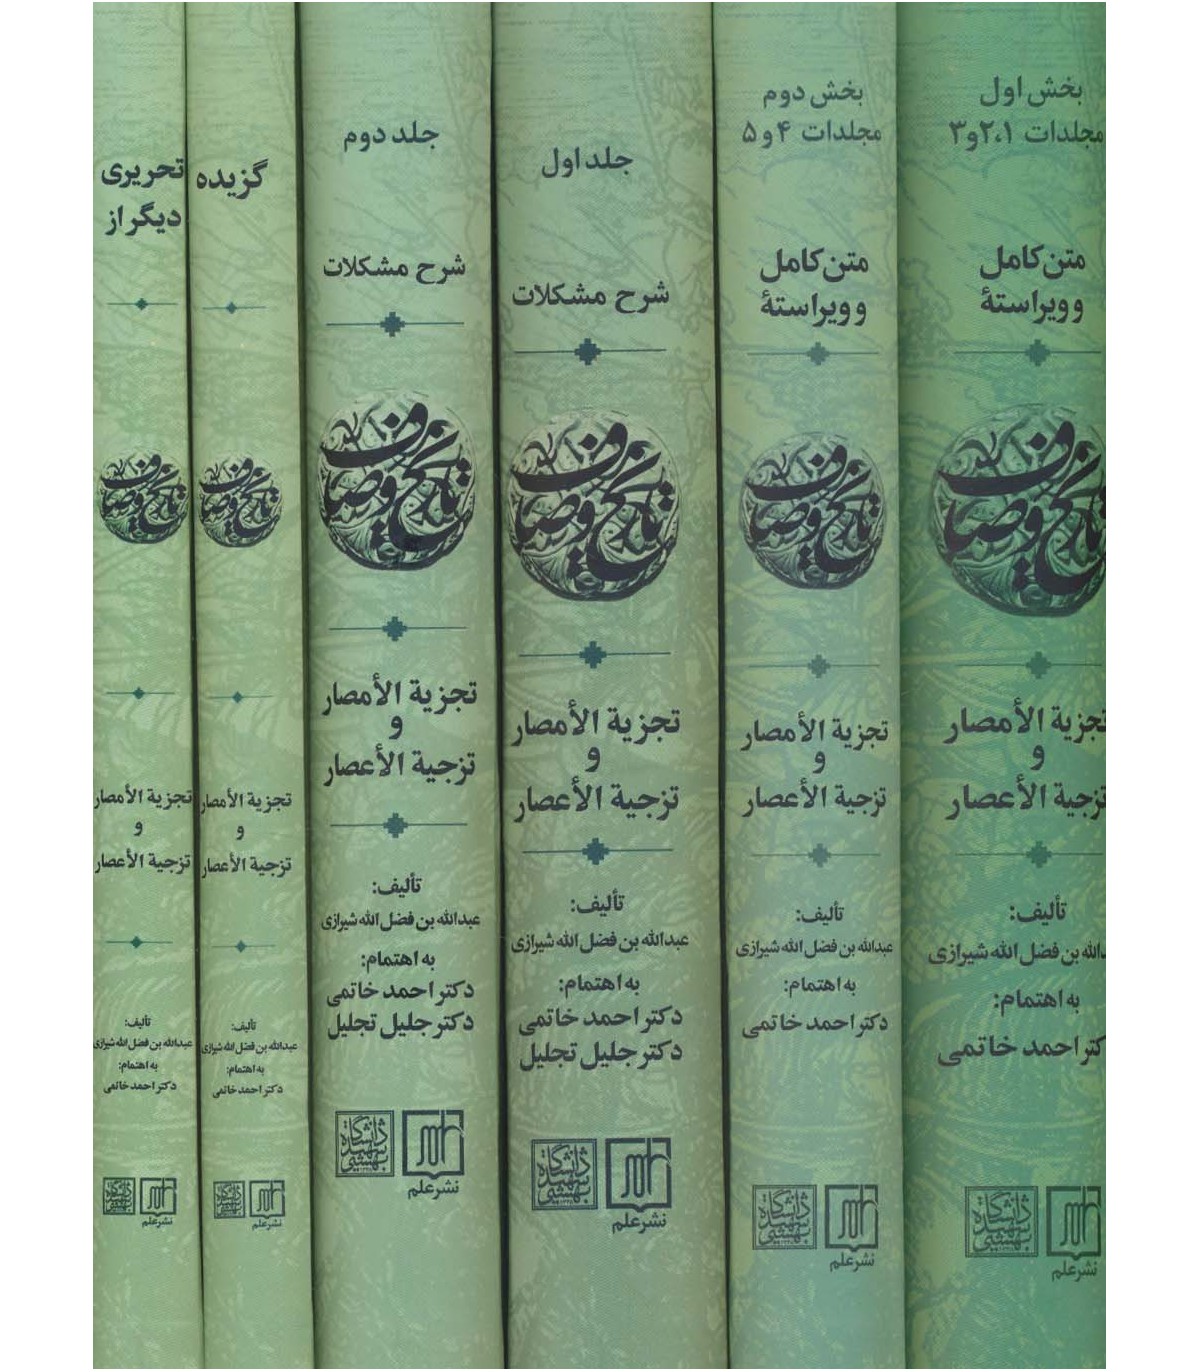 بخش اول
مجلدات ۲،۱و۳
متن کامل
و ویراستهٔ
تاریخ وصاف
تجزیة الأمصار
و
تزجیة الأعصار
تألیف:
عبدالله بن فضل الله شیرازی
به اهتمام:
دکتر احمد خاتمی
دانشگاه شهید بهشتی
نشر علم
بخش دوم
مجلدات ۴و۵
متن کامل
و ویراستهٔ
تاریخ وصاف
تجزیة الأمصار
و
تزجیة الأعصار
تألیف:
عبدالله بن فضل الله شیرازی
به اهتمام:
دکتر احمد خاتمی
دانشگاه شهید بهشتی
نشر علم
جلد اول
شرح مشکلات
تاریخ وصاف
تجزیة الأمصار
و
تزجیة الأعصار
تألیف:
عبدالله بن فضل الله شیرازی
به اهتمام:
دکتر احمد خاتمی
دکتر جلیل تجلیل
دانشگاه شهید بهشتی
نشر علم
جلد دوم
شرح مشکلات
تاریخ وصاف
تجزیة الأمصار
و
تزجیة الأعصار
تألیف:
عبدالله بن فضل الله شیرازی
به اهتمام:
دکتر احمد خاتمی
دکتر جلیل تجلیل
دانشگاه شهید بهشتی
نشر علم
گزیده
تاریخ وصاف
تجزیة الأمصار
و
تزجیة الأعصار
تألیف:
عبدالله بن فضل الله شیرازی
به اهتمام:
دکتر احمد خاتمی
دانشگاه شهید بهشتی
نشر علم
تحریری
دیگر از
تاریخ وصاف
تجزیة الأمصار
و
تزجیة الأعصار
تألیف:
عبدالله بن فضل الله شیرازی
به اهتمام:
دکتر احمد خاتمی
دانشگاه شهید بهشتی
نشر علم